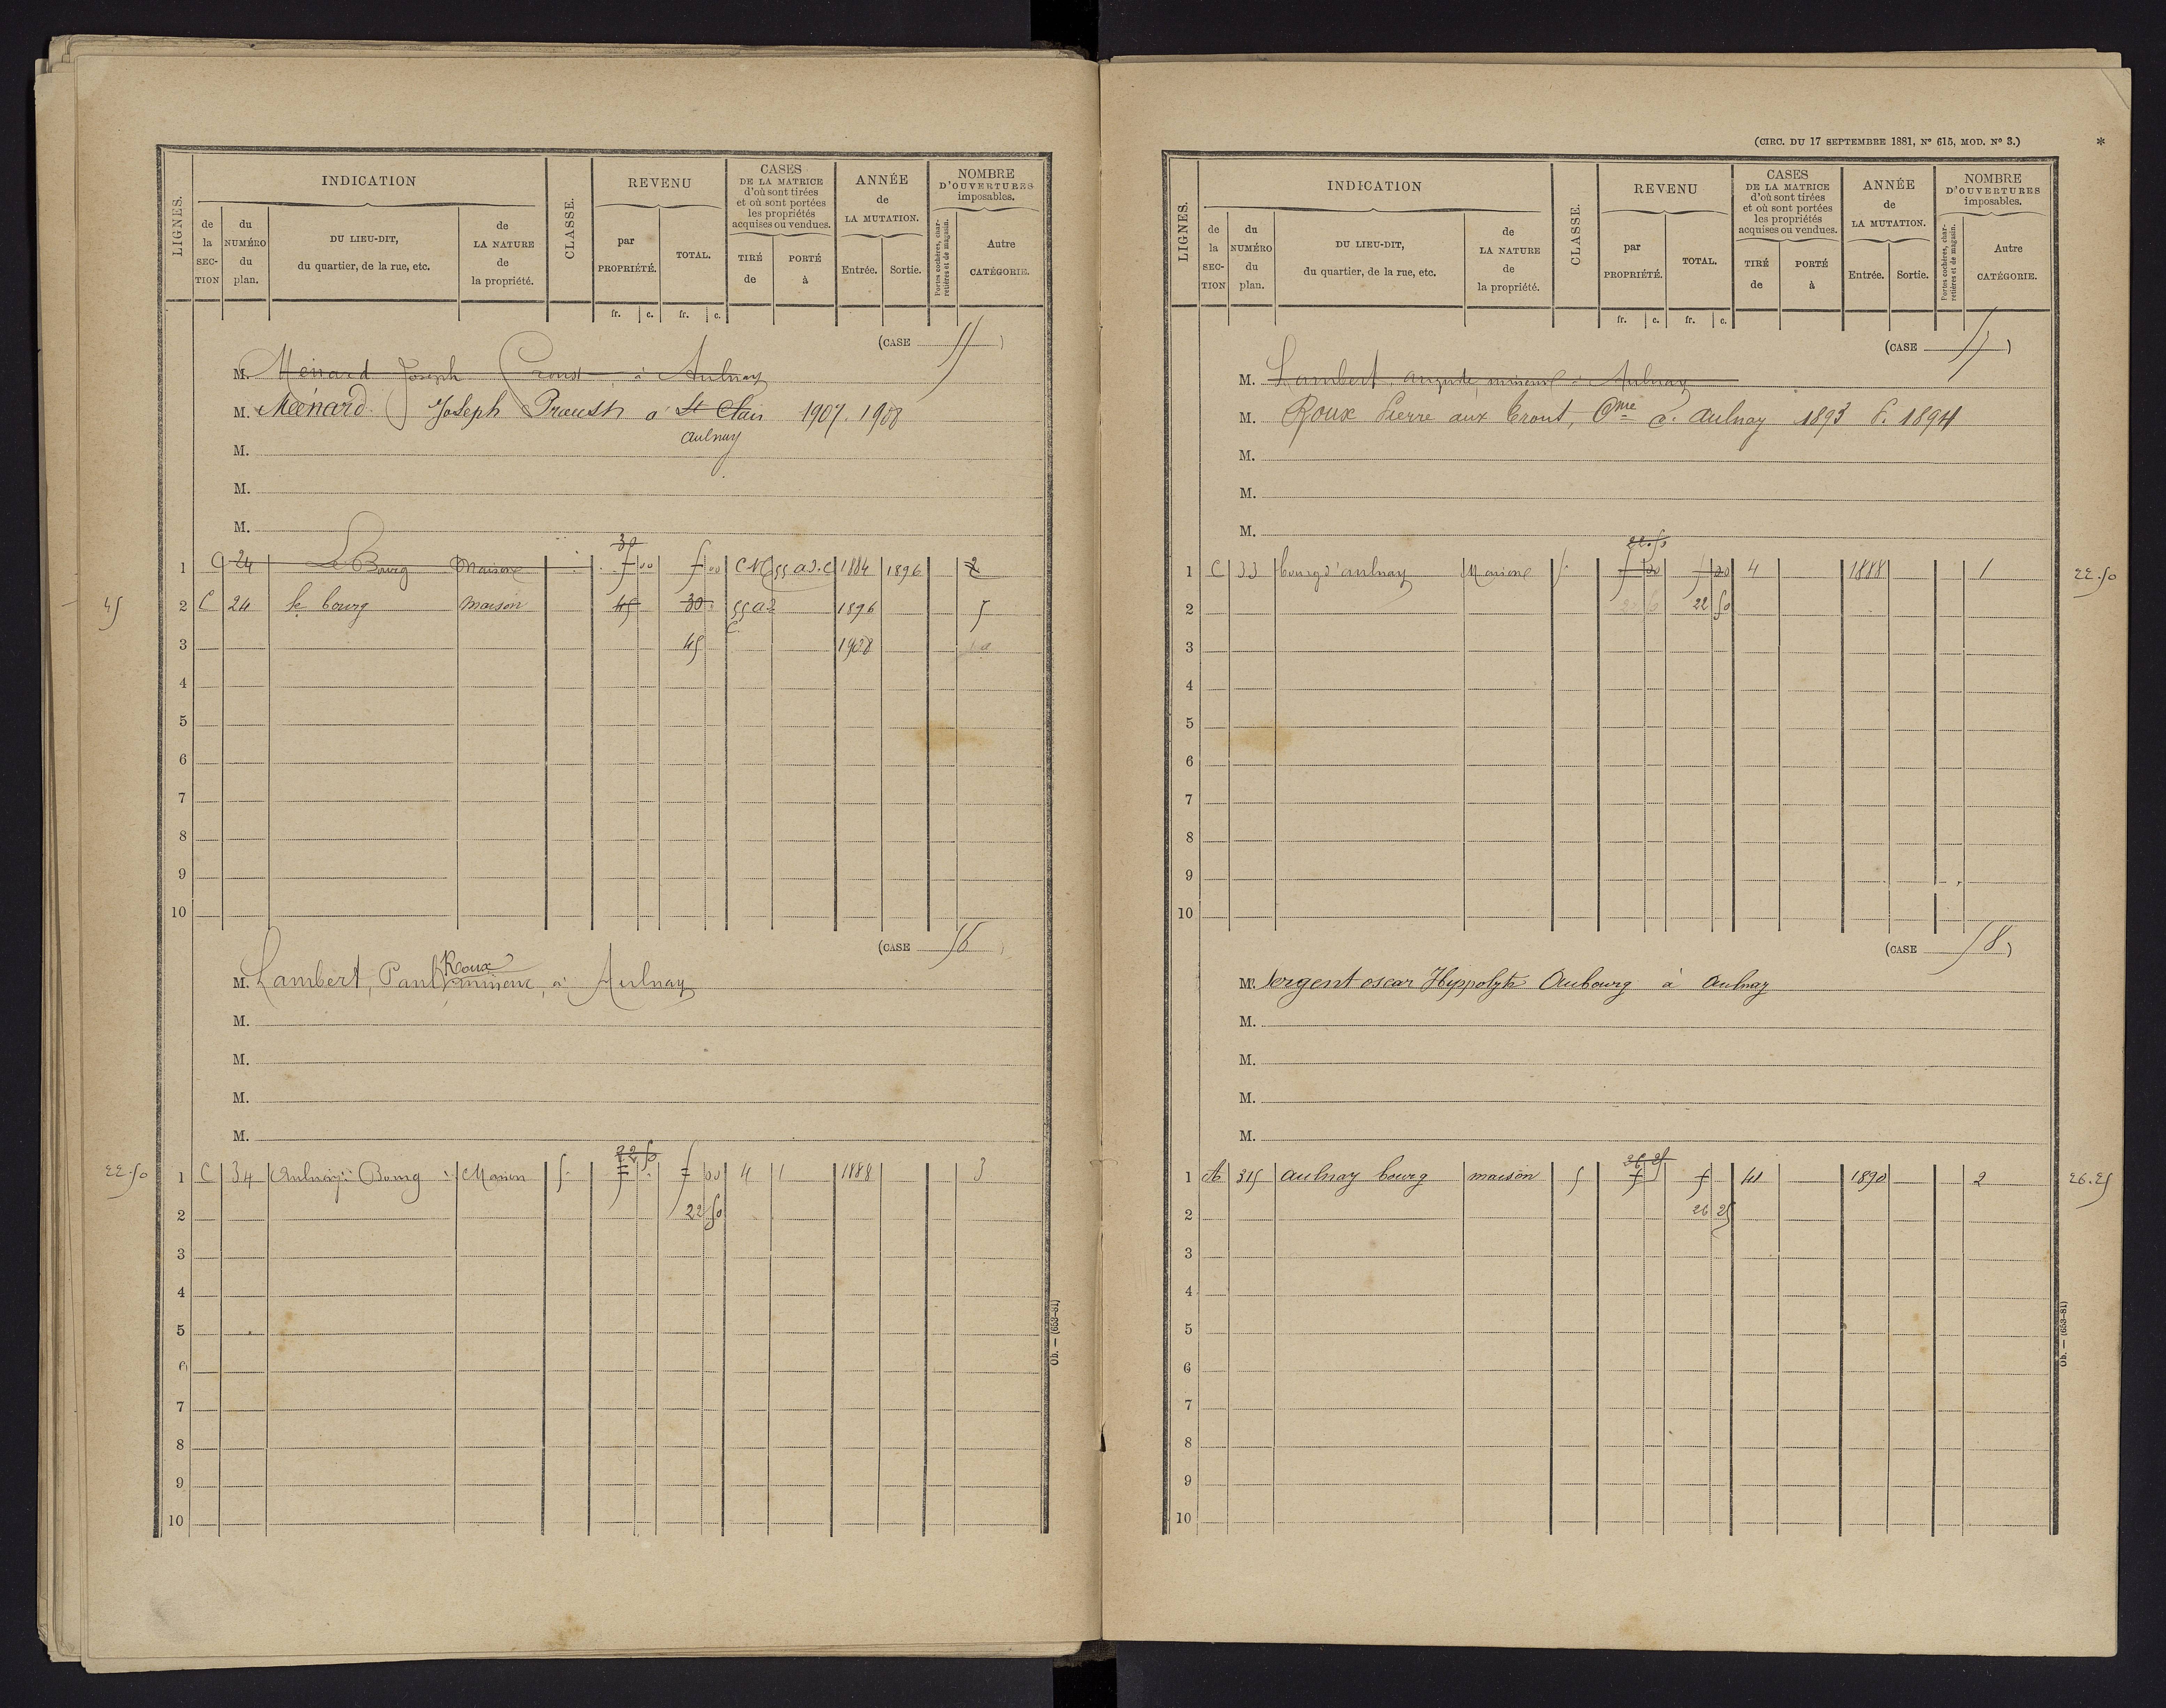 LIGNES.
INDICATION
de la SECTION
du NUMÉRO du plan.
DU LIEU-DIT, du quartier, de la rue, etc.
de LA NATURE de la propriété.
CLASSE.
REVENU
par PROPRIÉTÉ.
TOTAL.
CASES DE LA MATRICE d'où sont tirées et où sont portées les propriétés acquises ou vendues.
TIRÉ de
PORTÉ à
ANNÉE de LA MUTATION.
Entrée.
Sortie.
NOMBRE D'OUVERTURES imposables.
Portes cochères, charretières et de magasin.
Autre CATÉGORIE.
fr. c. fr. c.
(CASE 55)
M. Ménard Joseph Proust, à Aulnay
M. Meénard Joseph Proust à St Clair 1907. 1908
Aulnay
M.
M.
M.
30
1 C 24 Le Bourg Maison 5 00 5 00 1884 1896 2
45
2 C 24 le bourg maison 45 30 55 a 2 1896 5
C.
3 45 1908
4
5
6
7
8
9
10
(CASE 56)
Roux
M. Lambert, Paul mineur, à Aulnay
M.
M.
M.
M.
22 50
22.50
1 C 34 Aulnay Bourg Maison 5 5 5 00 4 1 1888 3
2 22 50
3
4
5
6
7
8
9
10
Ob. — (653-81)
(CIRC. DU 17 SEPTEMBRE 1881, N° 615, MOD. N° 3.)
*
LIGNES.
INDICATION
de la SECTION
du NUMÉRO du plan.
DU LIEU-DIT, du quartier, de la rue, etc.
de LA NATURE de la propriété.
CLASSE.
REVENU
par PROPRIÉTÉ.
TOTAL.
CASES DE LA MATRICE d'où sont tirées et où sont portées les propriétés acquises ou vendues.
TIRÉ de
PORTÉ à
ANNÉE de LA MUTATION.
Entrée.
Sortie.
NOMBRE D'OUVERTURES imposables.
Portes cochères, charretières et de magasin.
Autre CATÉGORIE.
fr. c. fr. c.
(CASE 57)
M. Lambert, auguste mineur à Aulnay
M. Roux Pierre aux Trout, Cne d'Aulnay 1893 P. 1894
M.
M.
M.
22.50
1 C 33 bourg d'aulnay Maison 5 5 00 5 00 4 1888 1
22.50
2 22 50 22 50
3
4
5
6
7
8
9
10
(CASE 58)
Mr. Sergent oscar Hyppolyte Aubourg à Aulnay
M.
M.
M.
M.
26 25
1 A 315 Aulnay bourg maison 5 5 5 41 1890 2
26.25
2 26 25
3
4
5
6
7
8
9
10
Ob. — (653-81)